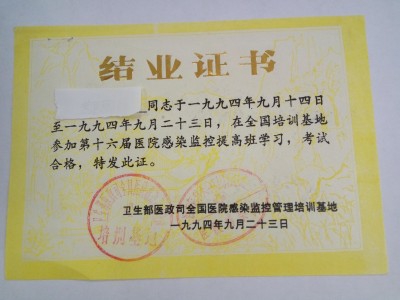 结业证书
同志于一九九四年九月十四日
至一九九四年九月二十三日，在全国培训基地
参加第十六届医院感染监控提高班学习，考试
合格，特发此证。
卫生部医政司全国医院感染监控管理培训基地
一九九四年九月二十三日
培训基地